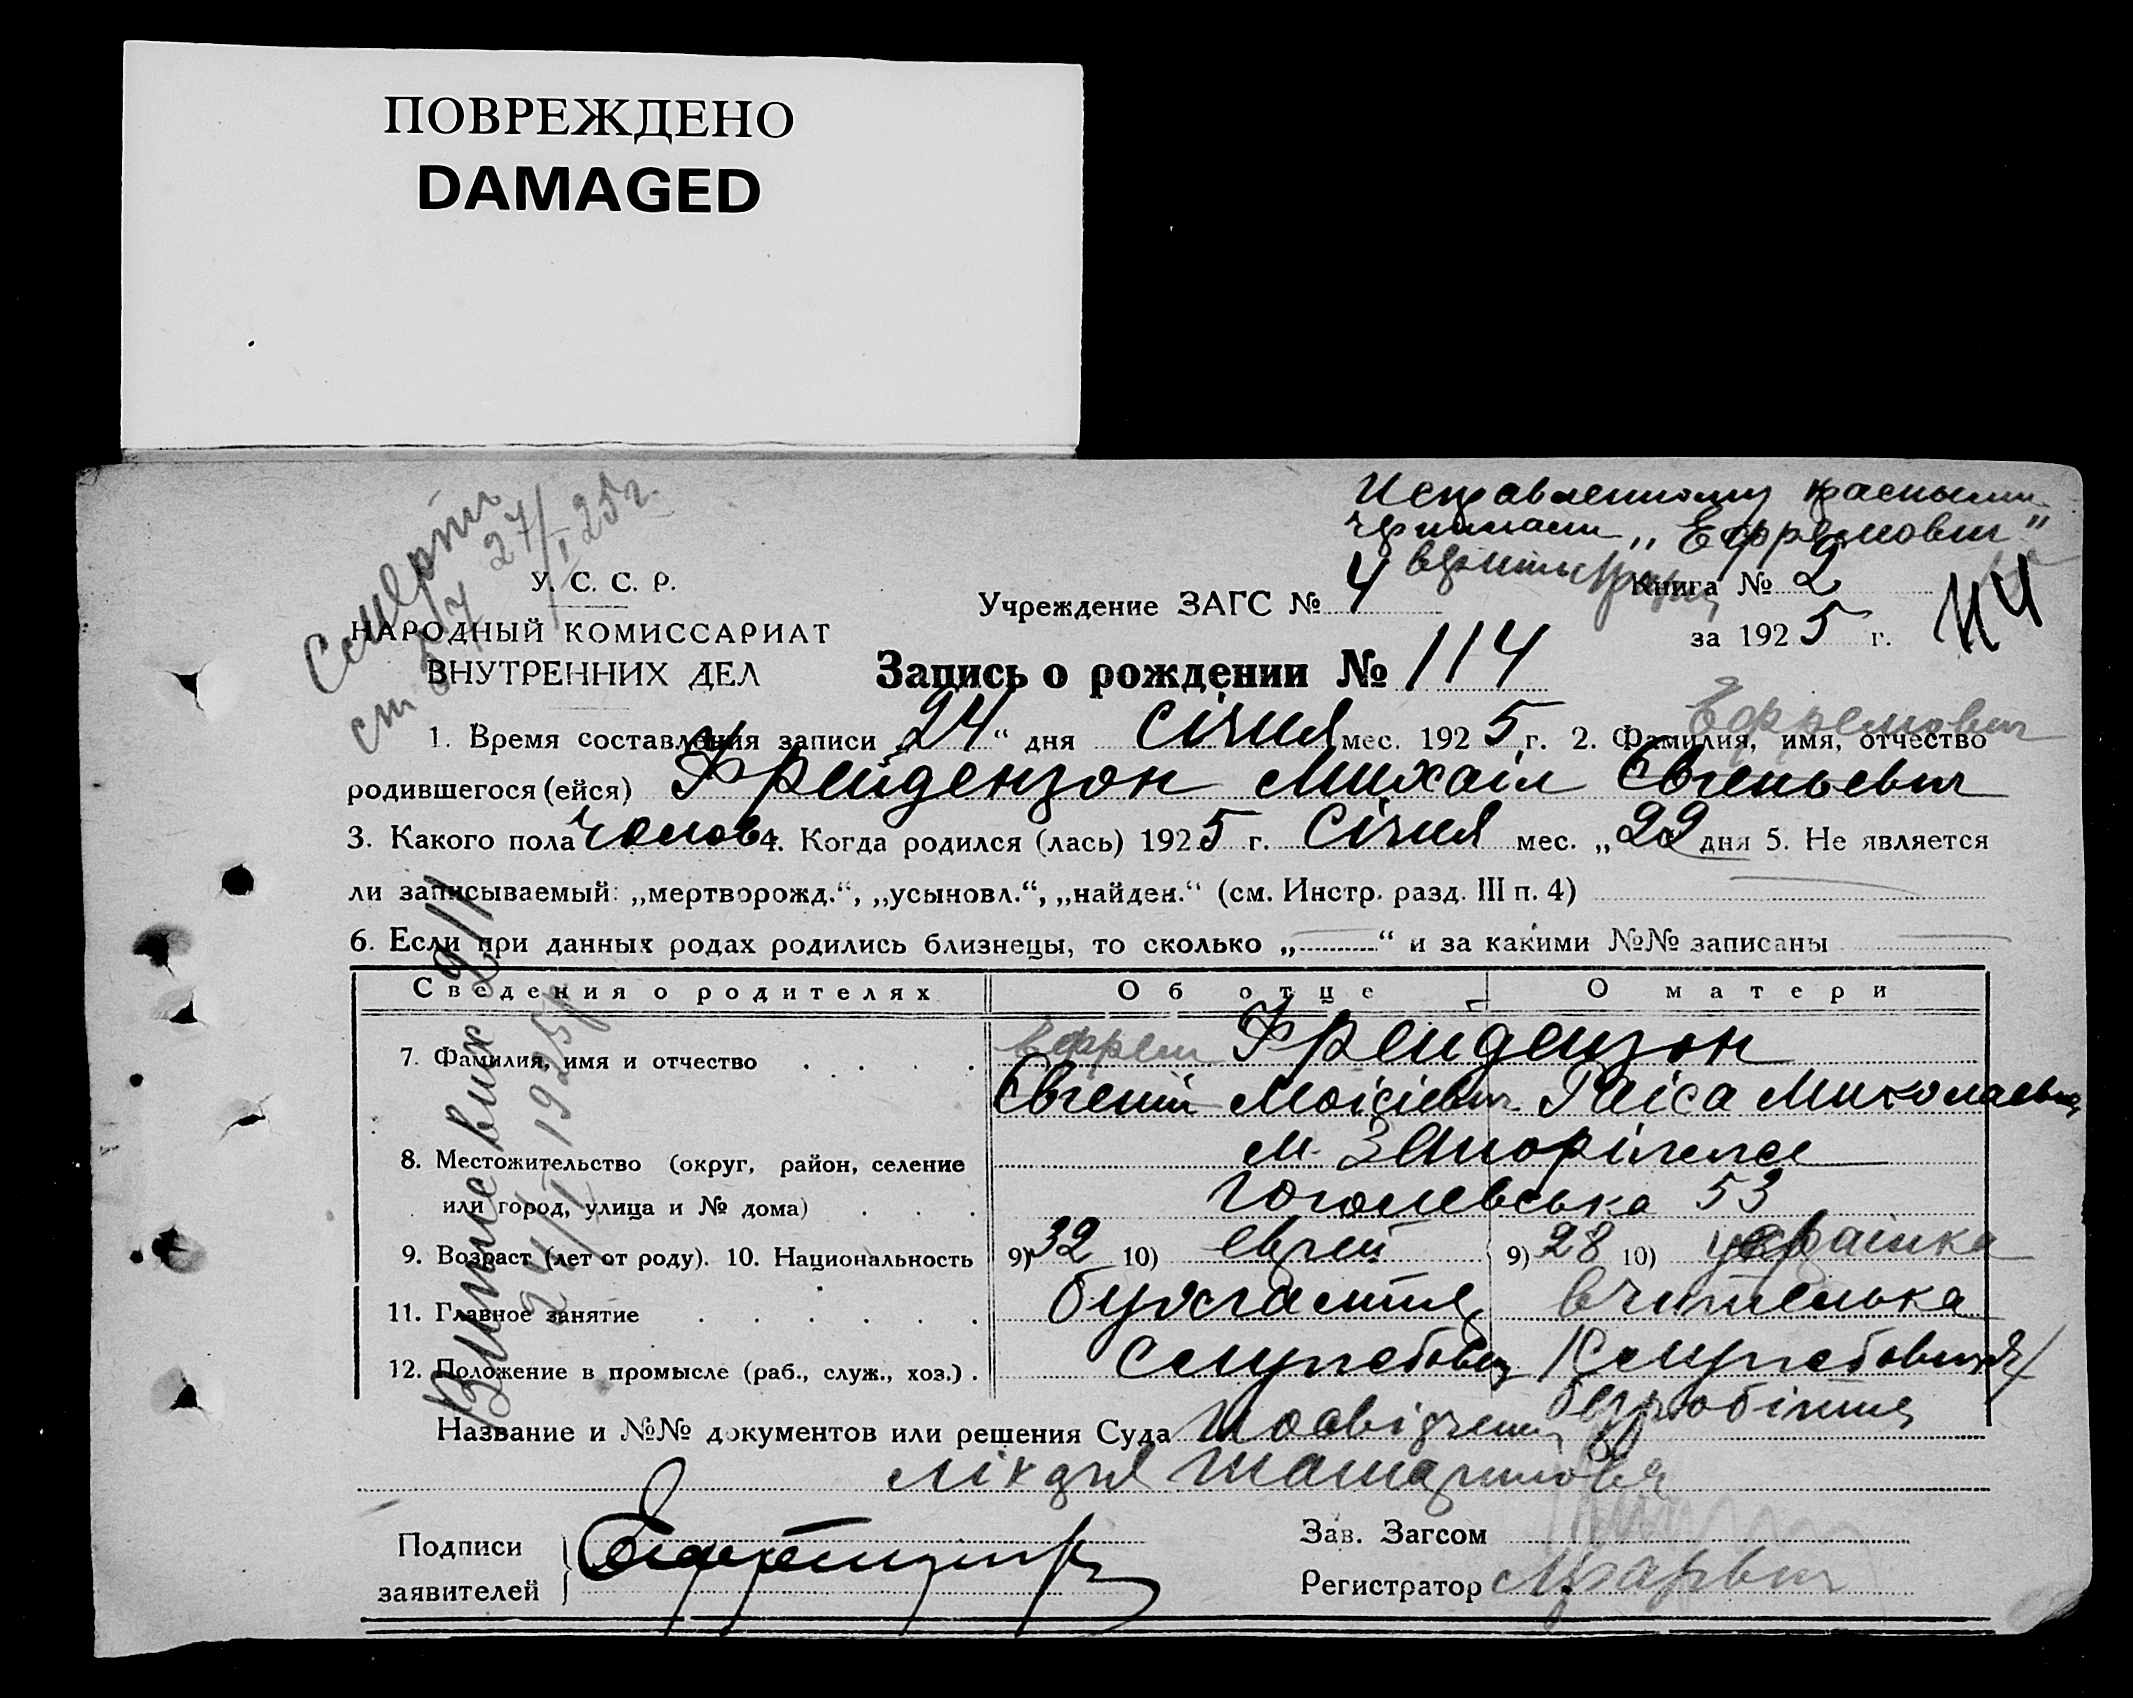 ПОВРЕЖДЕНО
DAMAGED
27/I 25г.
Исправленному красными
чернилами „Ефремович"
У. С. С. Р.
НАРОДНЫЙ КОМИССАРИАТ
ВНУТРЕННИХ ДЕЛ
Учреждение ЗАГС № 4
Книга № 2
за 1925 г.
114
Запись о рождении № 114
Ефремович
1. Время составления записи „24“ дня січня мес. 1925 г. 2. Фамилия, имя, отчество
родившегося (ейся) Фрейдензон Михаіл Євгеньевич
3. Какого пола чолов 4. Когда родился (лась) 1925 г. Січня мес. „22 дня 5. Не является
ли записываемый: „мертворожд.“, „усыновл.“, „найден.“ (см. Инстр. разд. III п. 4)
6. Если при данных родах родились близнецы, то сколько „ “ и за какими №№ записаны
Сведения о родителях Об отце О матери
7. Фамилия, имя и отчество Ефрем Фрейдензон
Євгеній Моісіевич Раіса Миколаевна
8. Местожительство (округ, район, селение м. Запоріжжя
или город, улица и № дома) Гоголевська 53
9. Возраст (лет от роду). 10. Национальность 9) 32 10) еврей 9) 28 10) українка
11. Главное занятие бухгалтер вчителька
12. Положение в промысле (раб., служ., хоз.) службовец службовиця
безробітня
Название и №№ документов или решения Суда Посвідчення
лікаря
Подписи
заявителей
Зав. Загсом
Регистратор